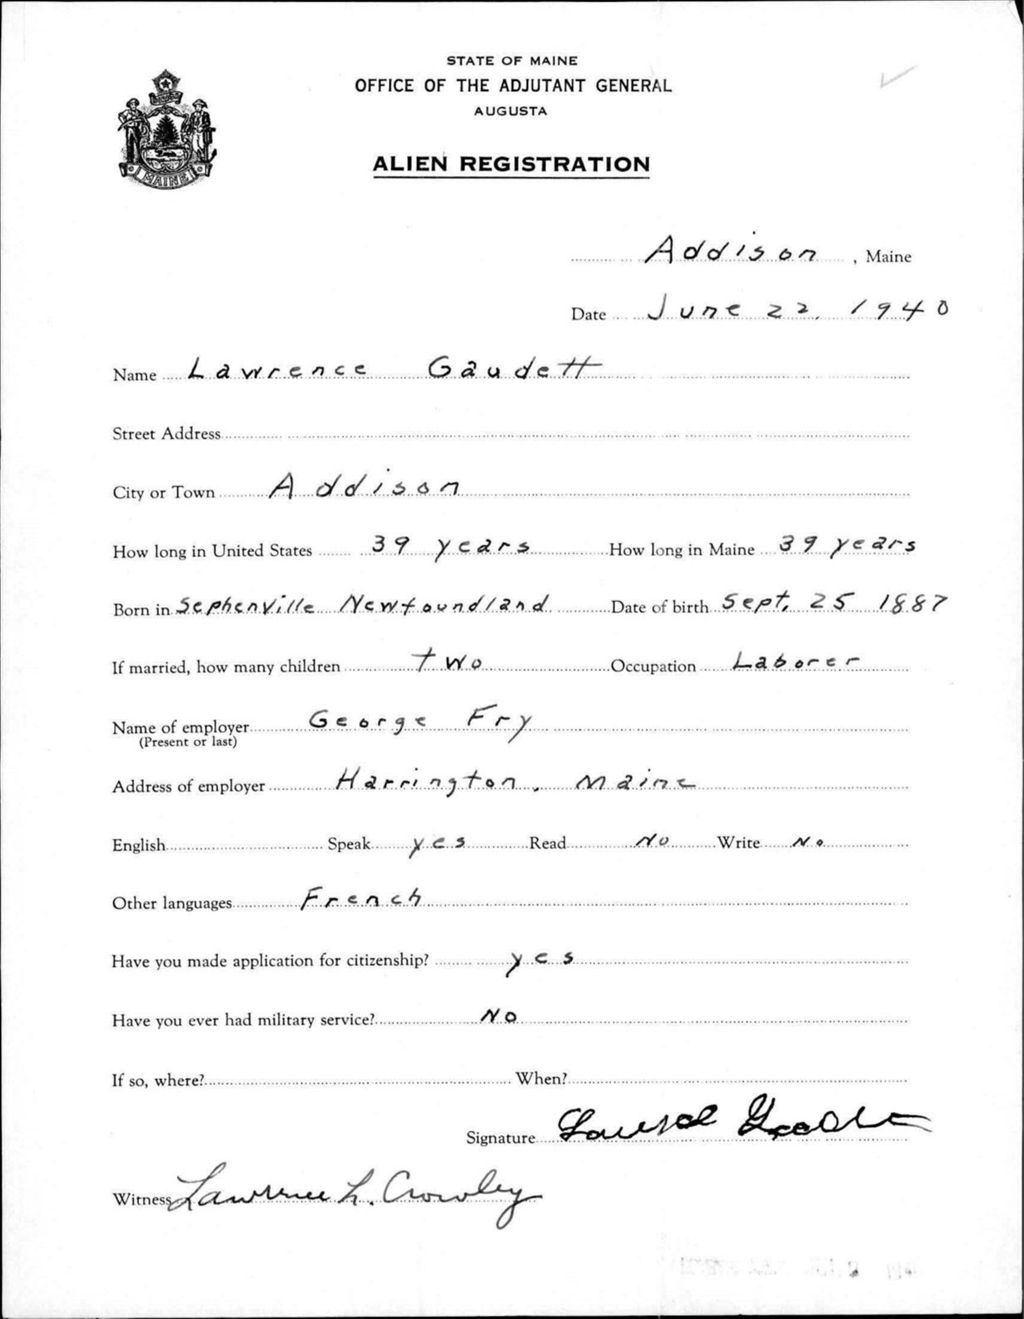 STATE OF MAINE
OFFICE OF THE ADJUTANT GENERAL
AUGUSTA
MAINE
ALIEN REGISTRATION
Addison, Maine
Date June 22, 1940
Name Lawrence Gaudett
Street Address
City or Town Addison
How long in United States 39 years How long in Maine 39 years
Born in Sephenville Newfoundland Date of birth Sept. 25 1887
If married, how many children two Occupation Laborer
Name of employer George Fry
(Present or last)
Address of employer Harrington, Maine
English Speak yes Read No Write No
Other languages French
Have you made application for citizenship? yes
Have you ever had military service? No
If so, where? When?
Signature
Witness Lawrence L. Crowley